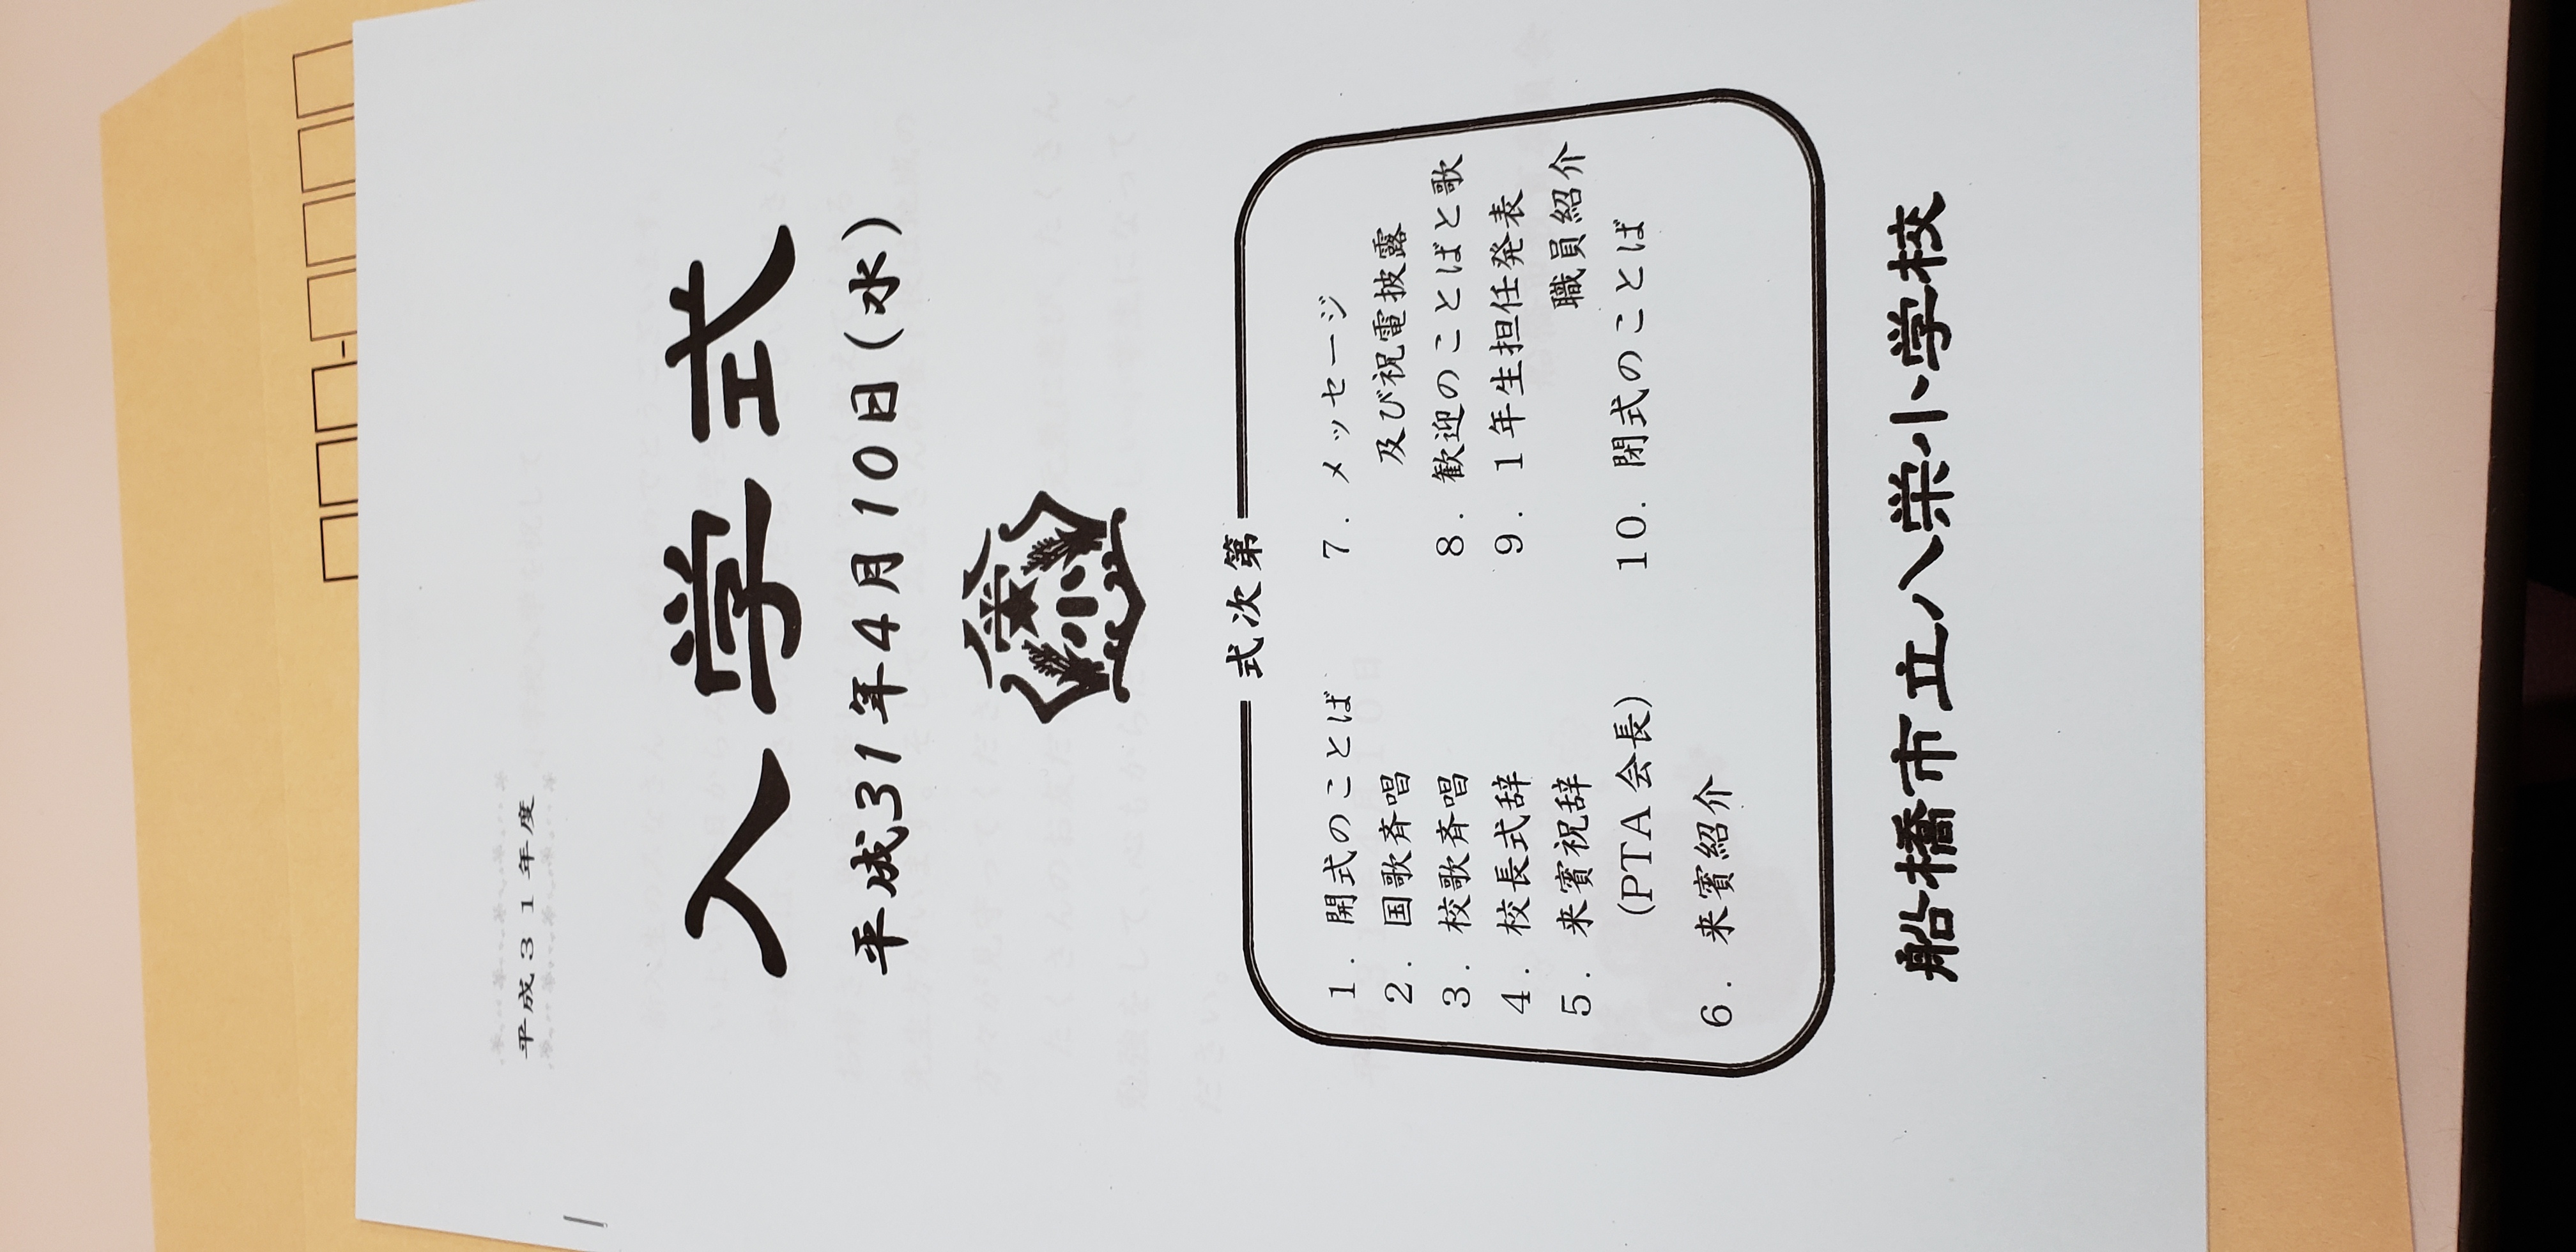 平成31年度
入学式
平成31年4月10日(水)
栄
小
式次第
1. 開式のことば
2. 国歌斉唱
3. 校歌斉唱
4. 校長式辞
5. 来賓祝辞
(PTA会長)
6. 来賓紹介
7. メッセージ
及び祝電披露
8. 歓迎のことばと歌
9. 1年生担任発表
職員紹介
10. 閉式のことば
船橋市立八栄小学校